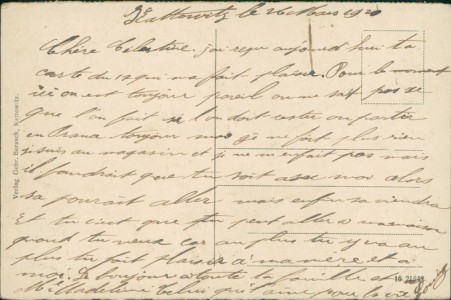 Kattowitz le 26 Mars 1920
Chère Celestine, j'ai reçu aujourd'hui ta
carte du 12 qui m'a fait plaisir. Pour le moment
ici on est toujour pareil on ne sait pas se
que l'on fait si l'on doit rester ou partir
en toujour moi je ne fait plus rien
je suis au magasin et je ne m'en fait pas mais
il faudrait que tu soit avec moi alors
sa pourait aller mais enfin sa viendra
Et tu c'est que tu peut aller a
quand tu veux car au plus tu y va au
plus tu fait plaisir a ma mère et a
moi. Le bonjour a toute la famille et
Mlle Madeleine celui qui t'aime pour la vie
Verlag Gebr. Barasch, Kattowitz.